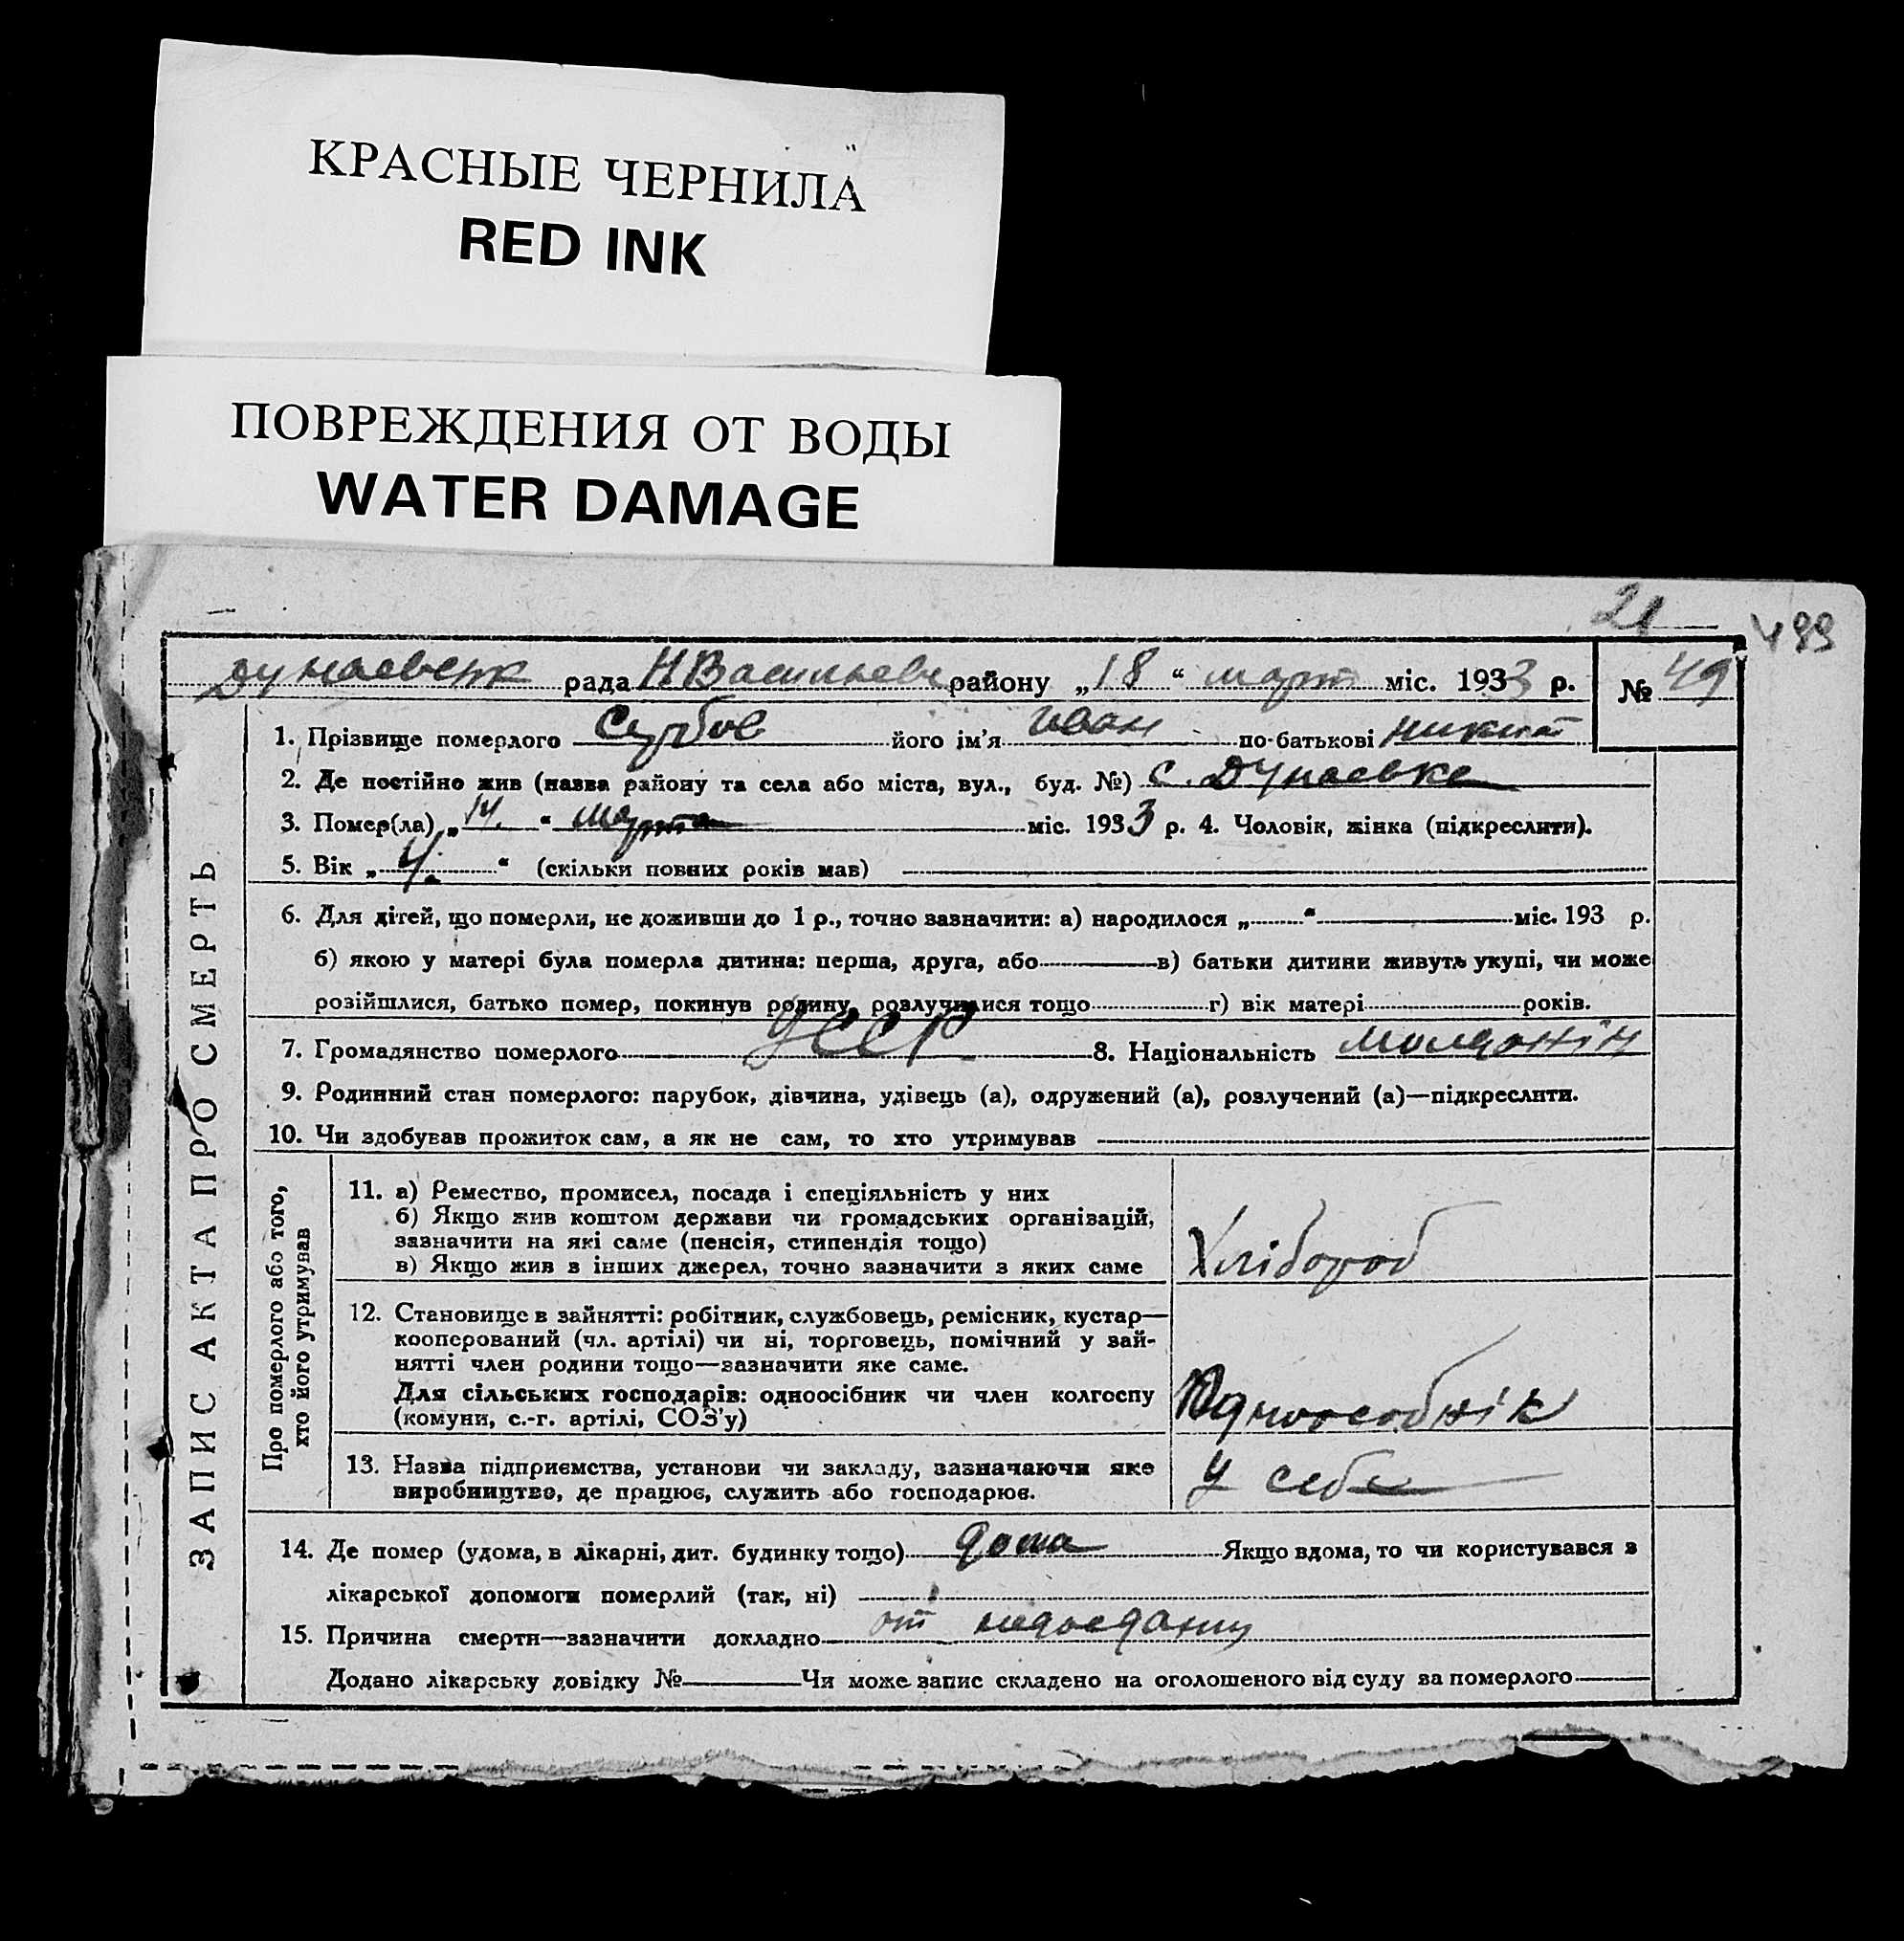 КРАСНЫЕ ЧЕРНИЛА
RED INK
ПОВРЕЖДЕНИЯ ОТ ВОДЫ
WATER DAMAGE
21
499
Дунаевськ рада Н Васильевк району „18“ март міс. 1933 р. № 49
ЗАПИС АКТА ПРО СМЕРТЬ
1. Прізвище померлого його ім'я Иван по-батькові Никит
2. Де постійно жив (назва району та села або міста, вул., буд. №) с. Дунаевке
3. Помер(ла) „14.“ марта міс. 1933 р. 4. Чоловік, жінка (підкреслити).
5. Вік „4.“ (скільки повних років мав)
6. Для дітей, що померли, не доживши до 1 р., точно зазначити: а) народилося „ “ міс. 193 р.
б) якою у матері була померла дитина: перша, друга, або в) батьки дитини живуть укупі, чи може
розійшлися, батько помер, покинув родину, розлучилися тощо г) вік матері років.
7. Громадянство померлого УССР 8. Національність молдонін
9. Родинний стан померлого: парубок, дівчина, удівець (а), одружений (а), розлучений (а)—підкреслити.
10. Чи здобував прожиток сам, а як не сам, то хто утримував
Про померлого або того,
хто його утримував
11. а) Ремество, промисел, посада і спеціяльність у них
б) Якщо жив коштом держави чи громадських організацій,
зазначити на які саме (пенсія, стипендія тощо)
в) Якщо жив з інших джерел, точно зазначити з яких саме
Хлібороб
12. Становище в зайнятті: робітник, службовець, ремісник, кустар—
кооперований (чл. артілі) чи ні, торговець, помічний у зай-
нятті член родини тощо—зазначити яке саме.
Для сільських господарів: одноосібник чи член колгоспу
(комуни, с.-г. артілі, СОЗ'у)
Одноособнік
13. Назва підприємства, установи чи закладу, зазначаючи яке
виробництво, де працює, служить або господарює.
У себе
14. Де помер (удома, в лікарні, дит. будинку тощо) дома Якщо вдома, то чи користувався з
лікарської допомоги померлий (так, ні)
15. Причина смерти—зазначити докладно от недоедания
Додано лікарську довідку № Чи може запис складено на оголошеного від суду за померлого